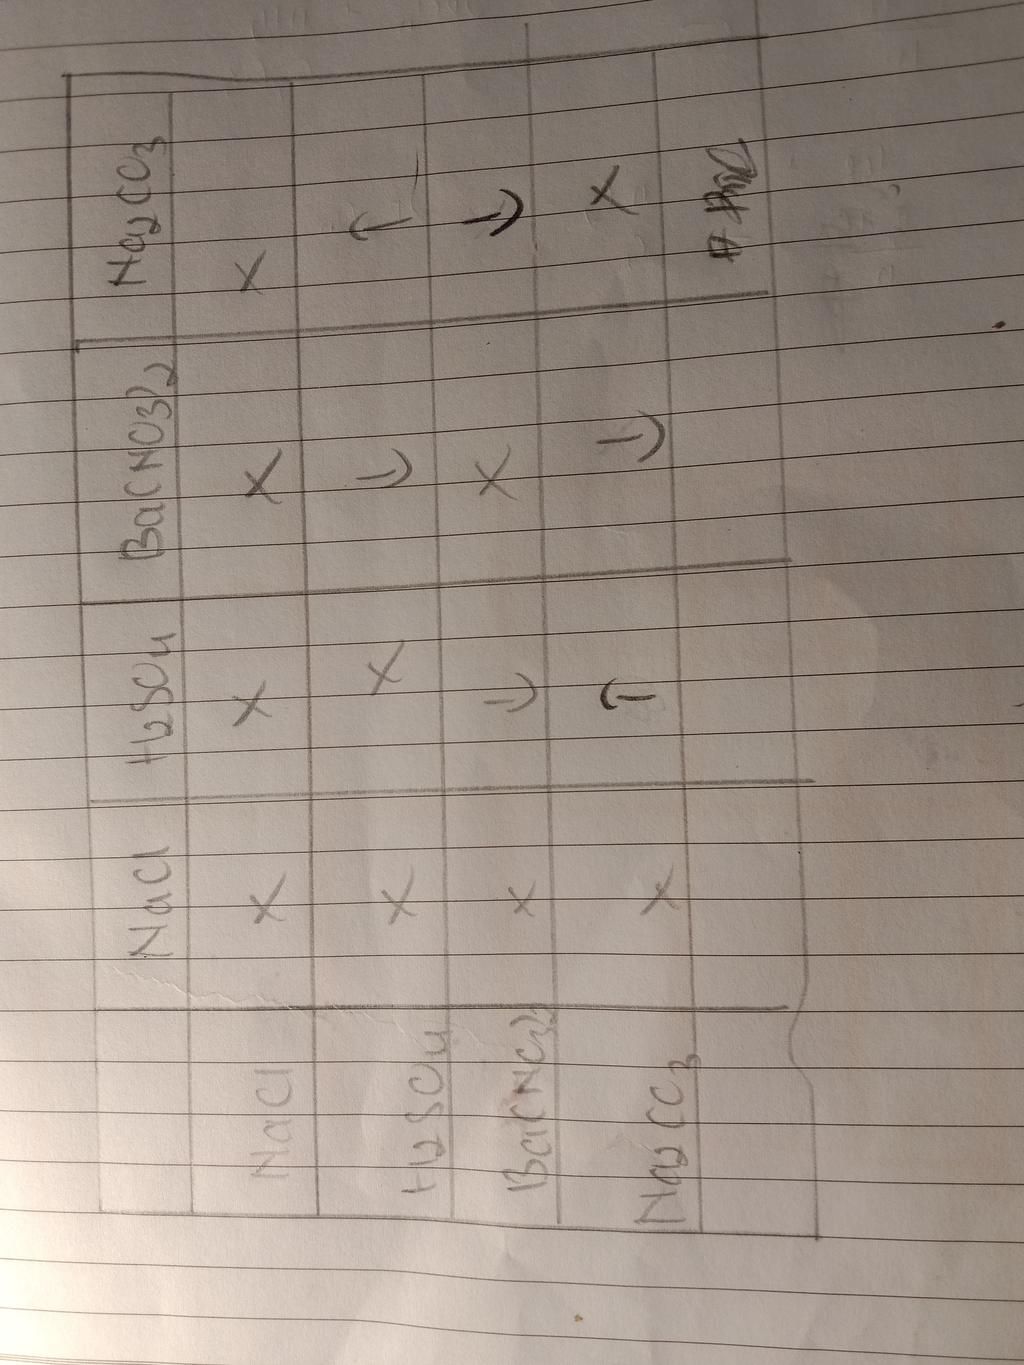 NaCl H2SO4 Ba(NO3)2 Na2CO3
NaCl X X X X
H2SO4 X X ↓ ↑
Ba(NO3)2 X ↓ X ↓
Na2CO3 X ↑ ↓ X